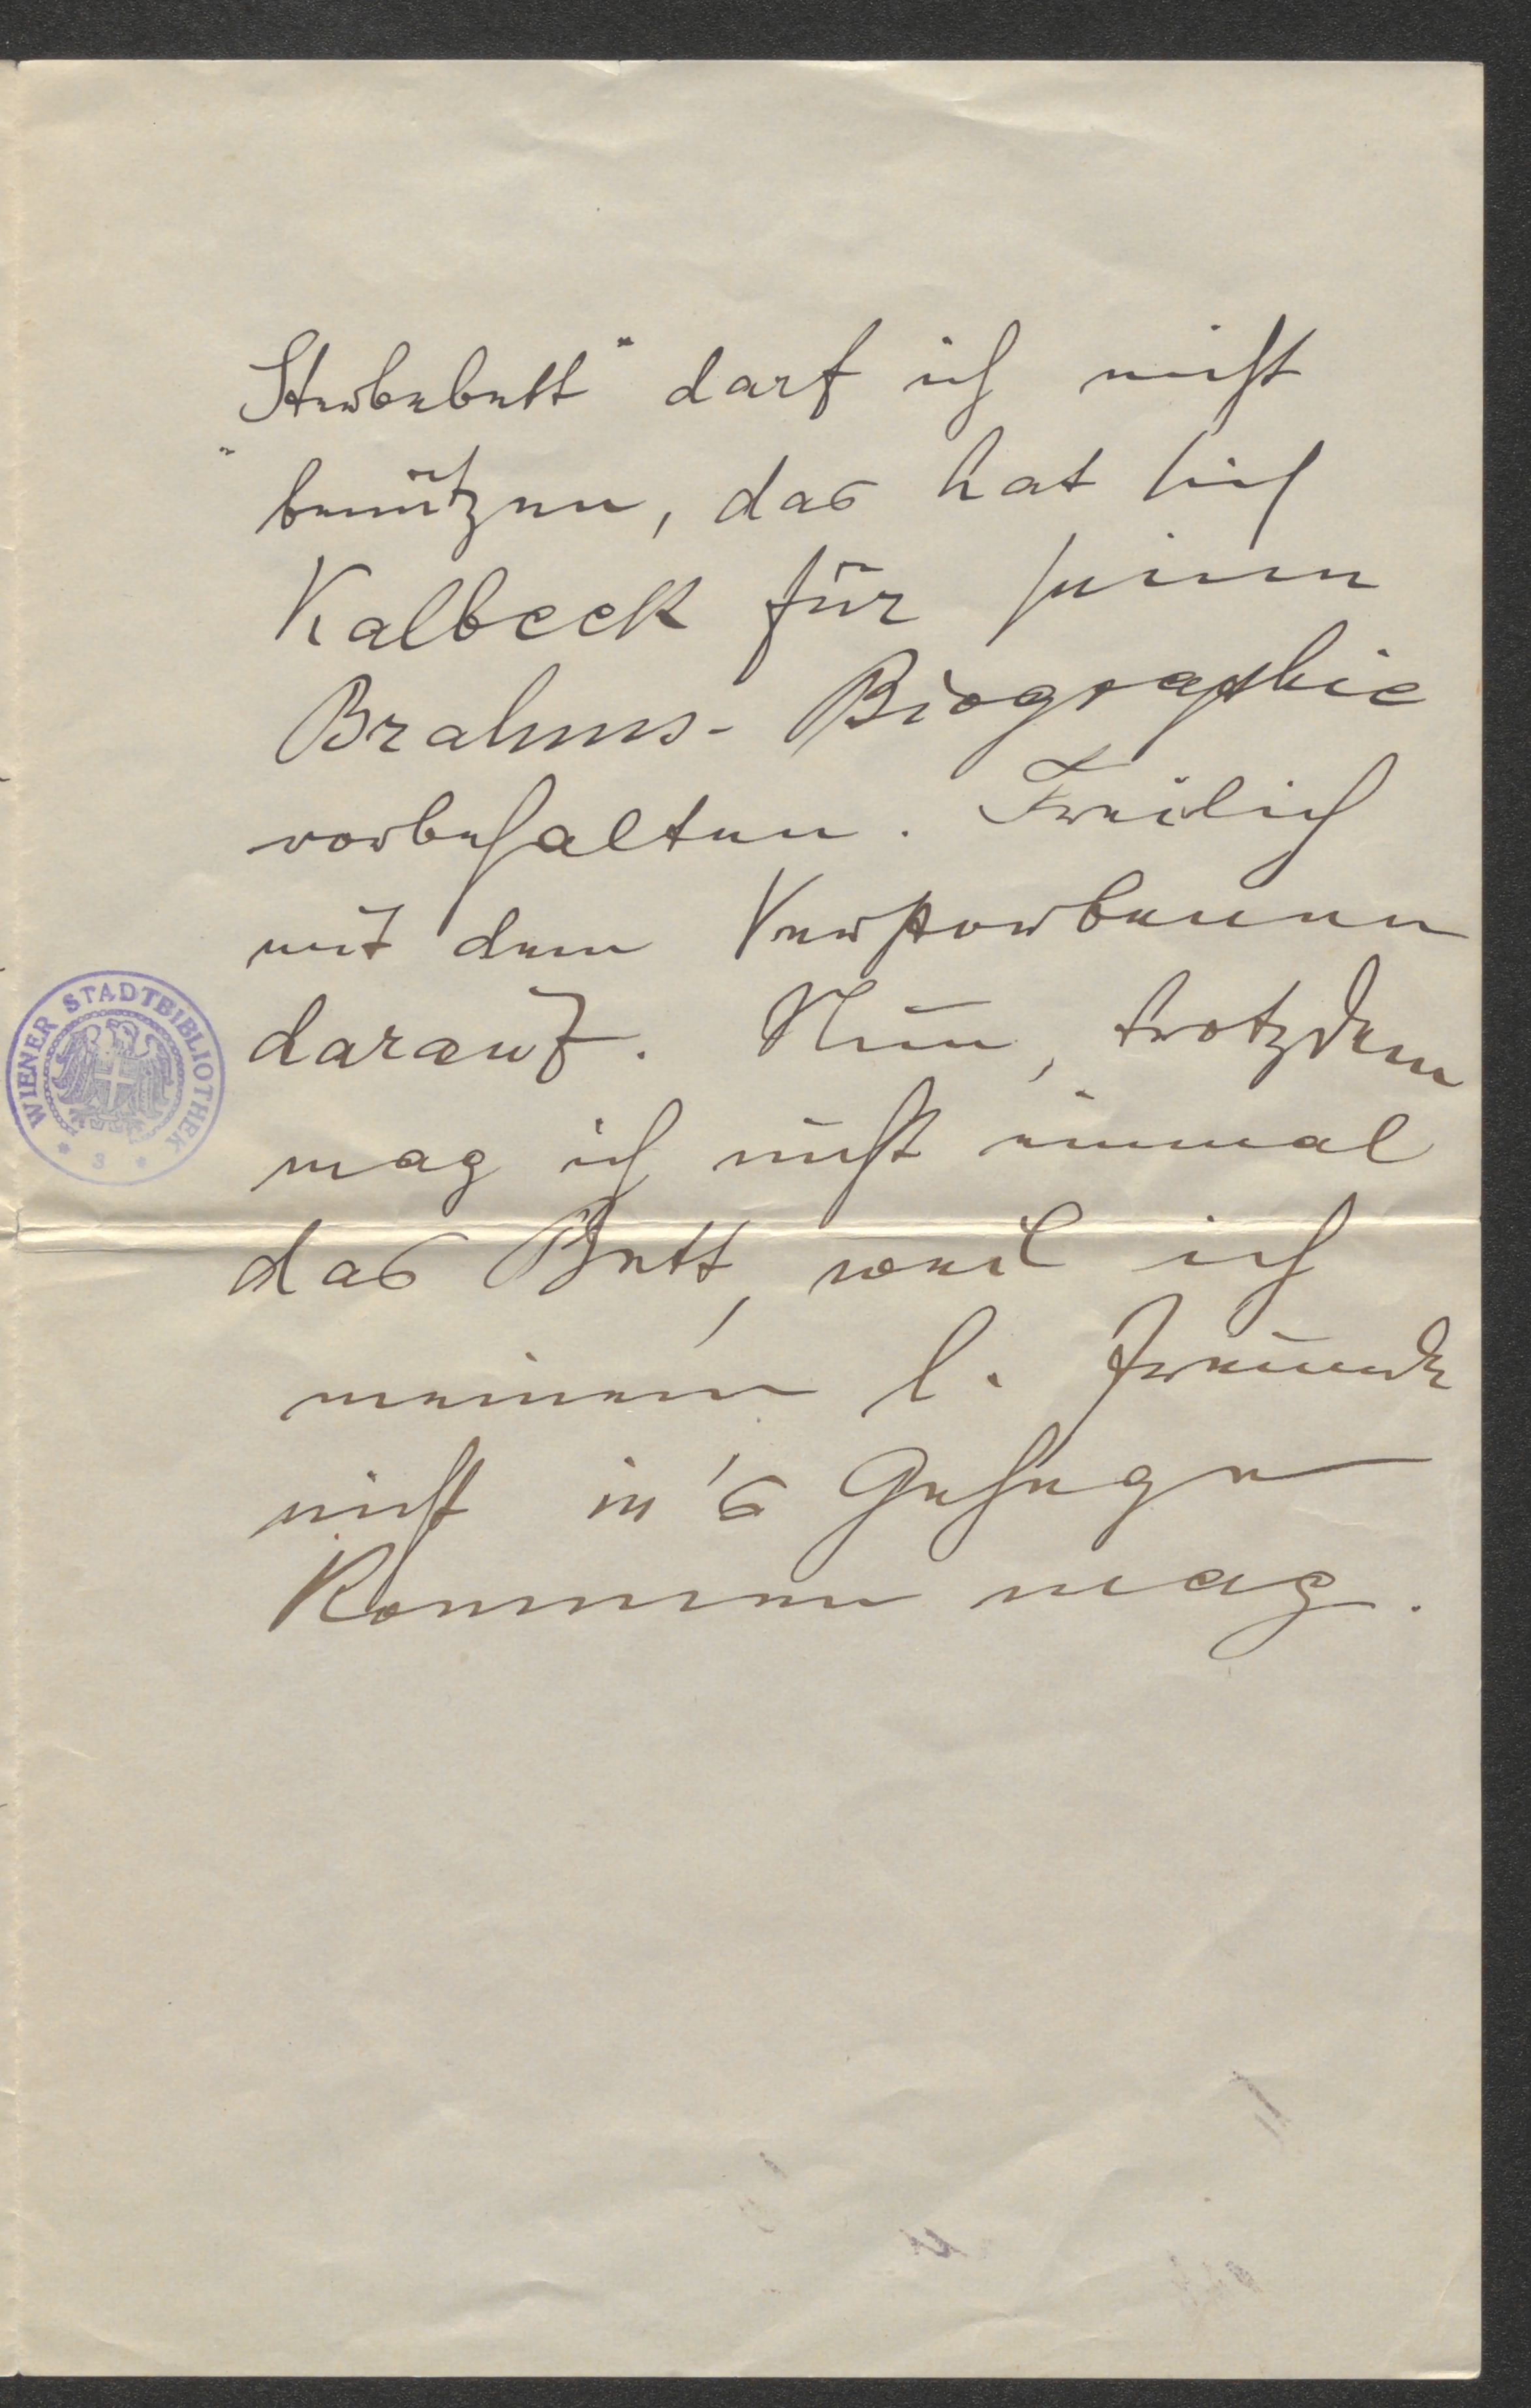 Sterbebett" darf ich nicht
"benützen, das hat sich
Kalbeck für seine
Brahms-Biographie
vorbehalten. Freilich
mit dem Verstorbenen
darauf. Nun, trotzdem
mag ich nicht einmal
das Bett, weil ich
meinem l. Freunde
nicht in's Gehege
kommen mag.
WIENER STADTBIBLIOTHEK
* 3 *